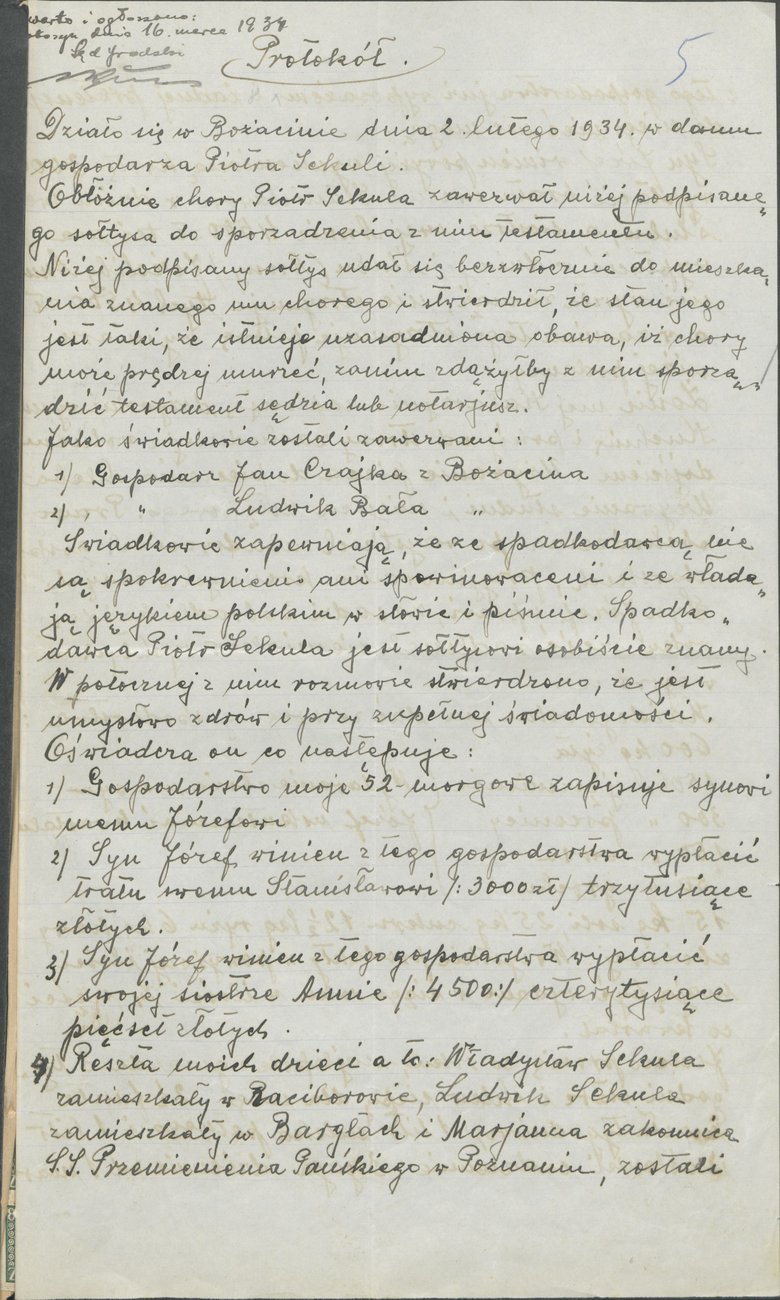 warto i ogłoszono:
dnia 16. marca 1934
Sąd Grodzki
5
Protokół.
Działo się w Bożacinie dnia 2. lutego 1934. w domu
gospodarza Piotra Sekuli.
Obłóżnie chory Piotr Sekula zawezwał niżej podpisane„
go sołtysa do sporządzenia z nim testamentu.
Niżej podpisany sołtys udał się bezzwłocznie do mieszka„
nia znanego mu chorego i stwierdził, że stan jego
jest taki, że istnieje uzasadniona obawa, iż chory
może prędzej umrzeć, zanim zdążyłby z nim sporzą„
dzić testament sędzia lub notarjusz.
Jako świadkowie zostali zawezwani:
1) Gospodarz Jan Czajka z Bożacina
2) „ Ludwik Bała „
Świadkowie zapewniają, że ze spadkodawcą nie
są spokrewnieni ani spowinowaceni i że włada„
ją językiem polskim w słowie i piśmie. Spadko„
dawca Piotr Sekula jest sołtysowi osobiście znany.
W potocznej z nim rozmowie stwierdzono, że jest
umysłowo zdrów i przy zupełnej świadomości.
Oświadcza on co następuje:
1) Gospodarstwo moje 52-morgowe zapisuje synowi
memu Józefowi
2) Syn Józef winien z tego gospodarstwa wypłacić
bratu swemu Stanisławowi /: 3000 zł/ trzytysiące
złotych.
3) Syn Józef winien z tego gospodarstwa wypłacić
swojej siostrze Annie /: 4500:/ czterytysiące
pięćset złotych.
4) Reszta moich dzieci a to: Władysław Sekula
zamieszkały w Raciborowie, Ludwik Sekula
zamieszkały w Barglach i Marjanna zakonnica
S.S. Przemienienia Pańskiego w Poznaniu, zostali